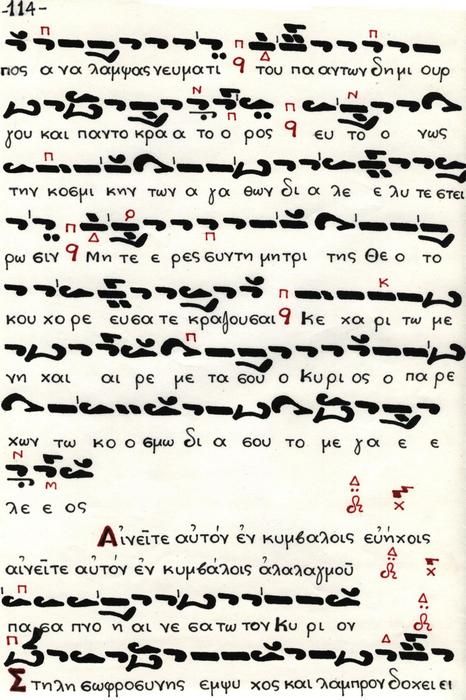 -114-
πος α να λαμψας νευματι του πα αντων δη μι ουρ
γου και παντο κρα α το ο ρος ευ το ο νως
την κοσμι κην των α γα θων δι α λε ε λυ τε στει
ρω σιν Μη τε ε ρες συν τη μητρι της Θε ο το
κου χο ρε ευσα τε κραζουσαι Κε χα ρι τω με
νη χαι αι ρε με τα σου ο Κυρι ος ο πα ρε
χων τω κο ο σμω δι α σου το με γα ε ε
λε ε ος
Αἰνεῖτε αὐτόν ἐν κυμβαλοις εὐήχοις
αἰνεῖτε αὐτόν ἐν κυμβάλοις ἀλαλαγμοῦ
πα σα πνο η αι νε σα τω τον Κυ ρι ον
Στηλη σωφροσυνης εμψυ χος και λαμπρον δοχει ει